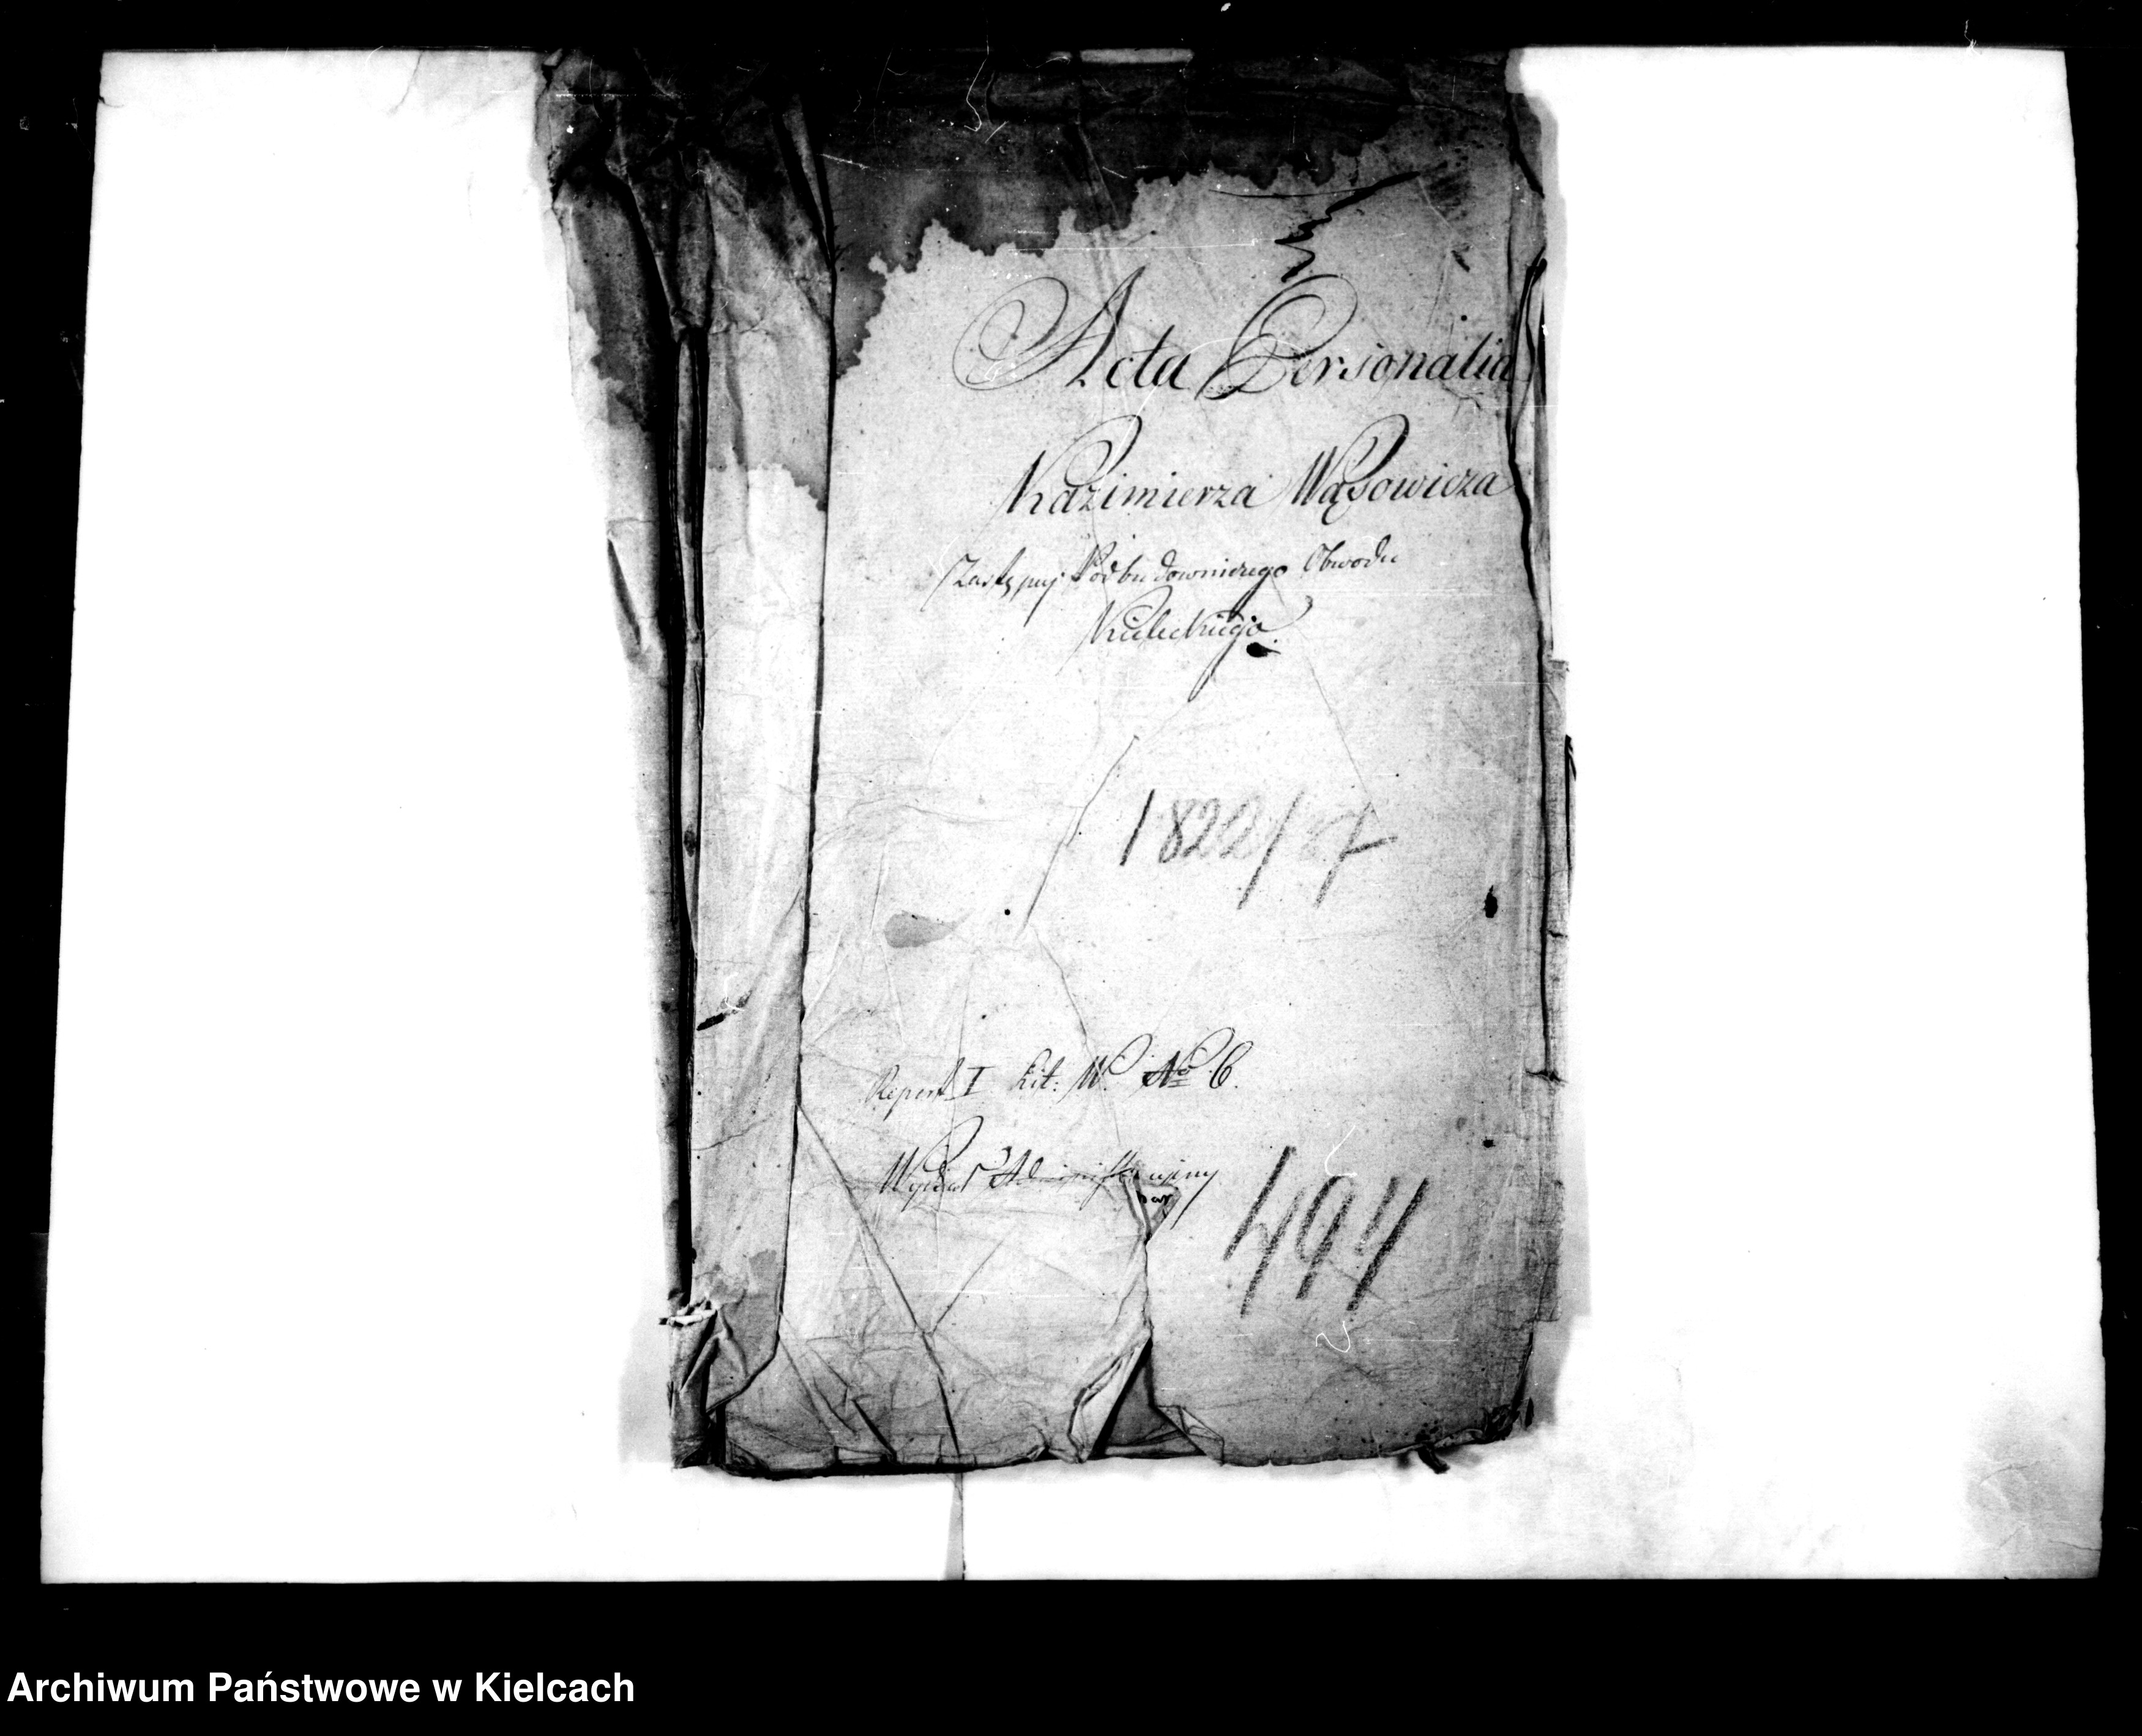 Acta Personalia
Kazimierza Wąsowicza
Zastępcy Podbudowniczego Obwodu
Kieleckiego.
1822/27
Repert I Lit: W. No 6.
Wydział Administracyjny
494
Archiwum Państwowe w Kielcach